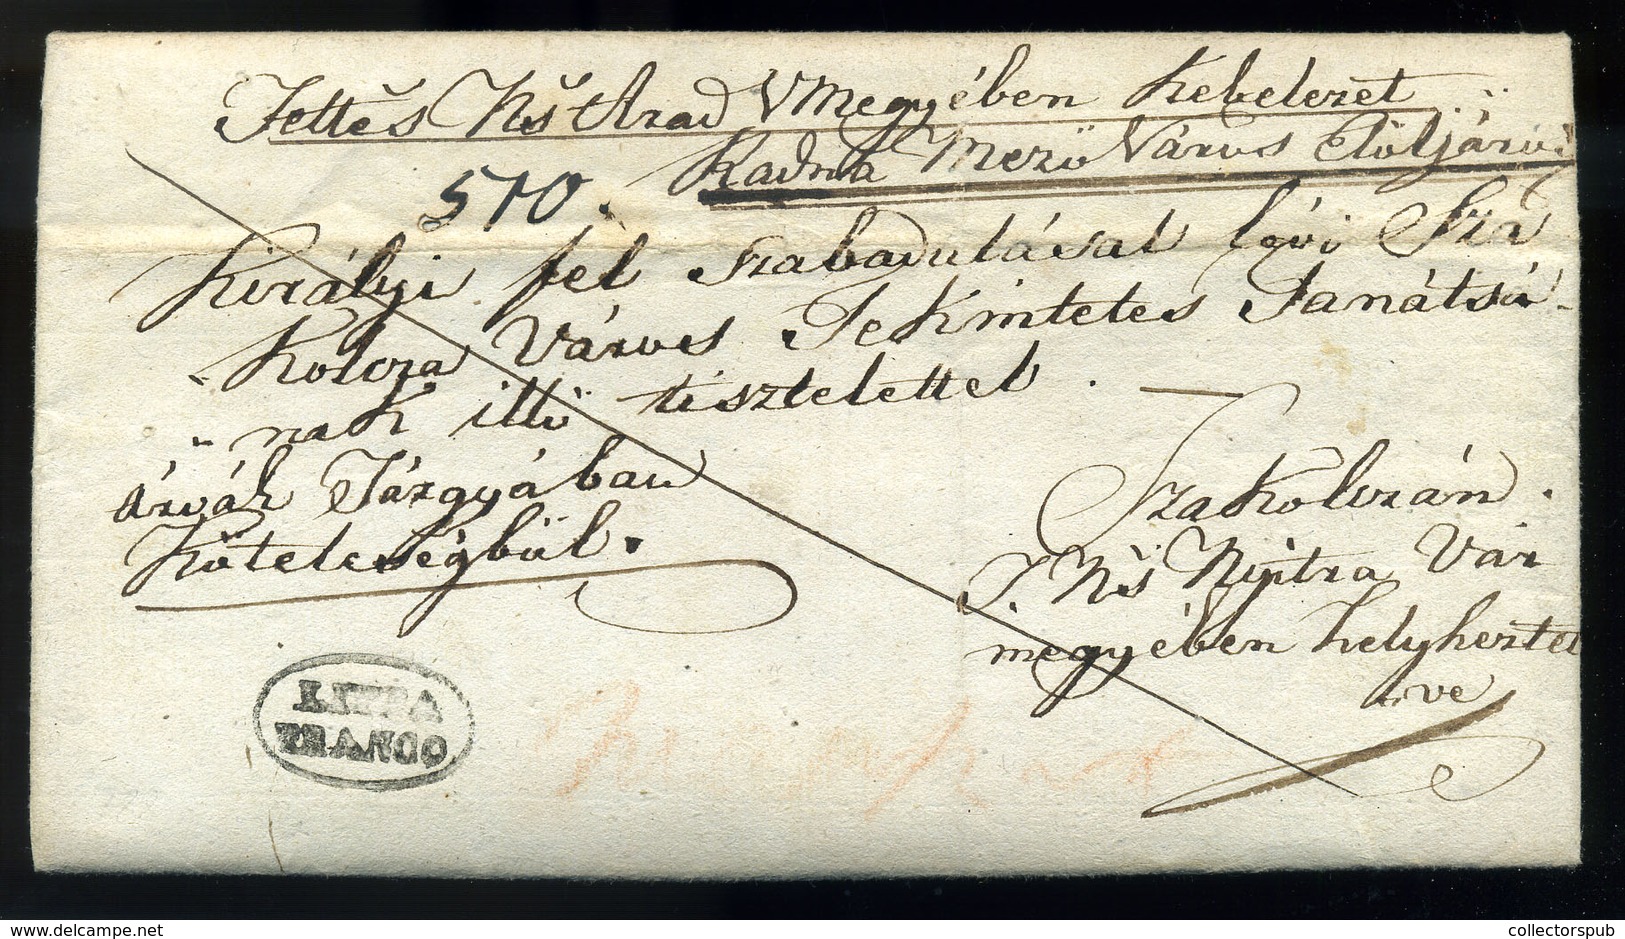 Tettes Ns Arad Vmegyében Kebelezet
Radna Mező Város Elöljáróji
510.
Királyi fel szabadulásal lévi Sza
Kolcza Város Tekintetes Tanátsá-
"nak illő tisztelettel.
árvák Tárgyában
Kötelességbül.
Szakolczán.
T. Ns Nyitra Vár
megyében helyheztet
ve
LIPPA
FRANCO
collectorspub